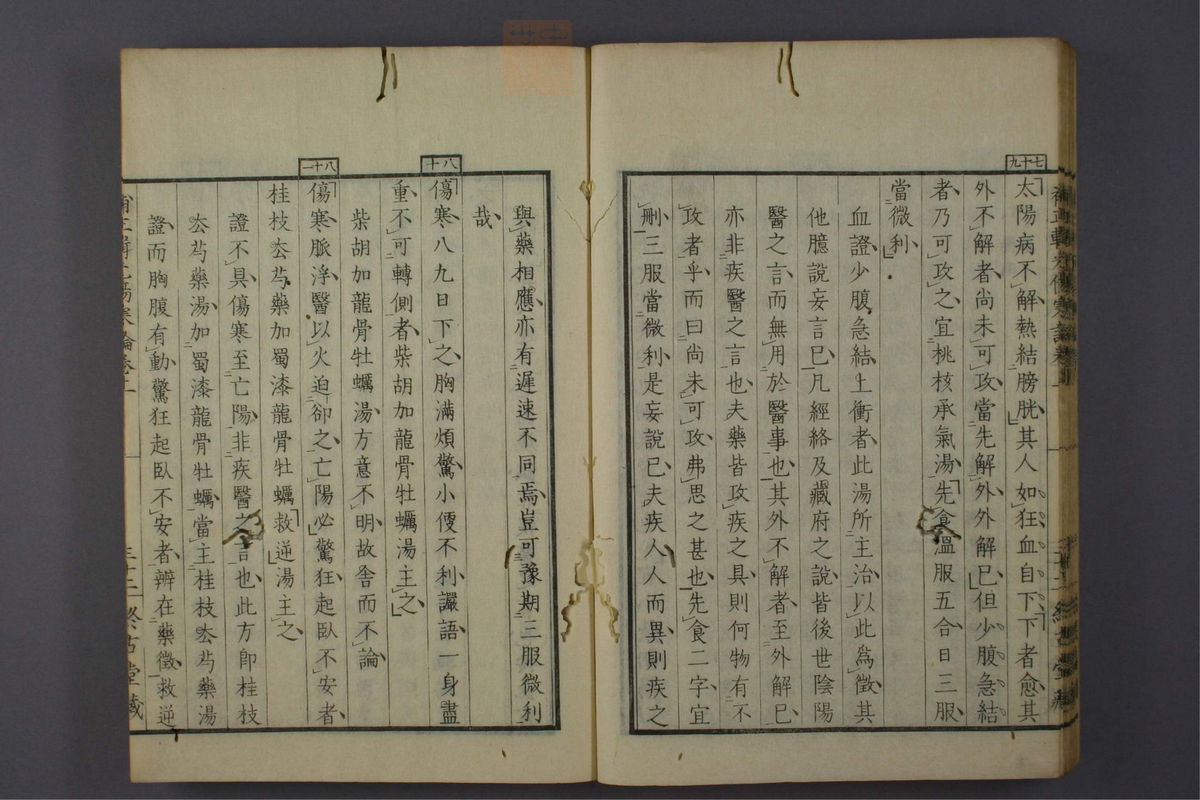 七十九
太陽病不解熱結膀胱其人如狂血自下下者愈其
外不解者尚未可攻當先解外外解已但少腹急結
者乃可攻之宜桃核承氣湯先食溫服五合日三服
當微利
血證少腹急結上衝者此湯所主治以此爲徵其
他臆說妄言已凡經絡及藏府之說皆後世陰陽
醫之言而無用於醫事也其外不解者至外解已
亦非疾醫之言也夫藥皆攻疾之具則何物有不
攻者乎而曰尚未可攻弗思之甚也先食二字宜
刪三服當微利是妄說已夫疾人人而異則疾之
與藥相應亦有遲速不同焉豈可豫期三服微利
哉
八十
傷寒八九日下之胸滿煩驚小便不利讝語一身盡
重不可轉側者柴胡加龍骨牡蠣湯主之
柴胡加龍骨牡蠣湯方意不明故舍而不論
八十一
傷寒脈浮醫以火迫卻之亡陽必驚狂起臥不安者
桂枝厺芍藥加蜀漆龍骨牡蠣救逆湯主之
證不具傷寒至亡陽非疾醫之言也此方卽桂枝
厺芍藥湯加蜀漆龍骨牡蠣當主桂枝厺芍藥湯
證而胸腹有動驚狂起臥不安者辨在藥徵救逆